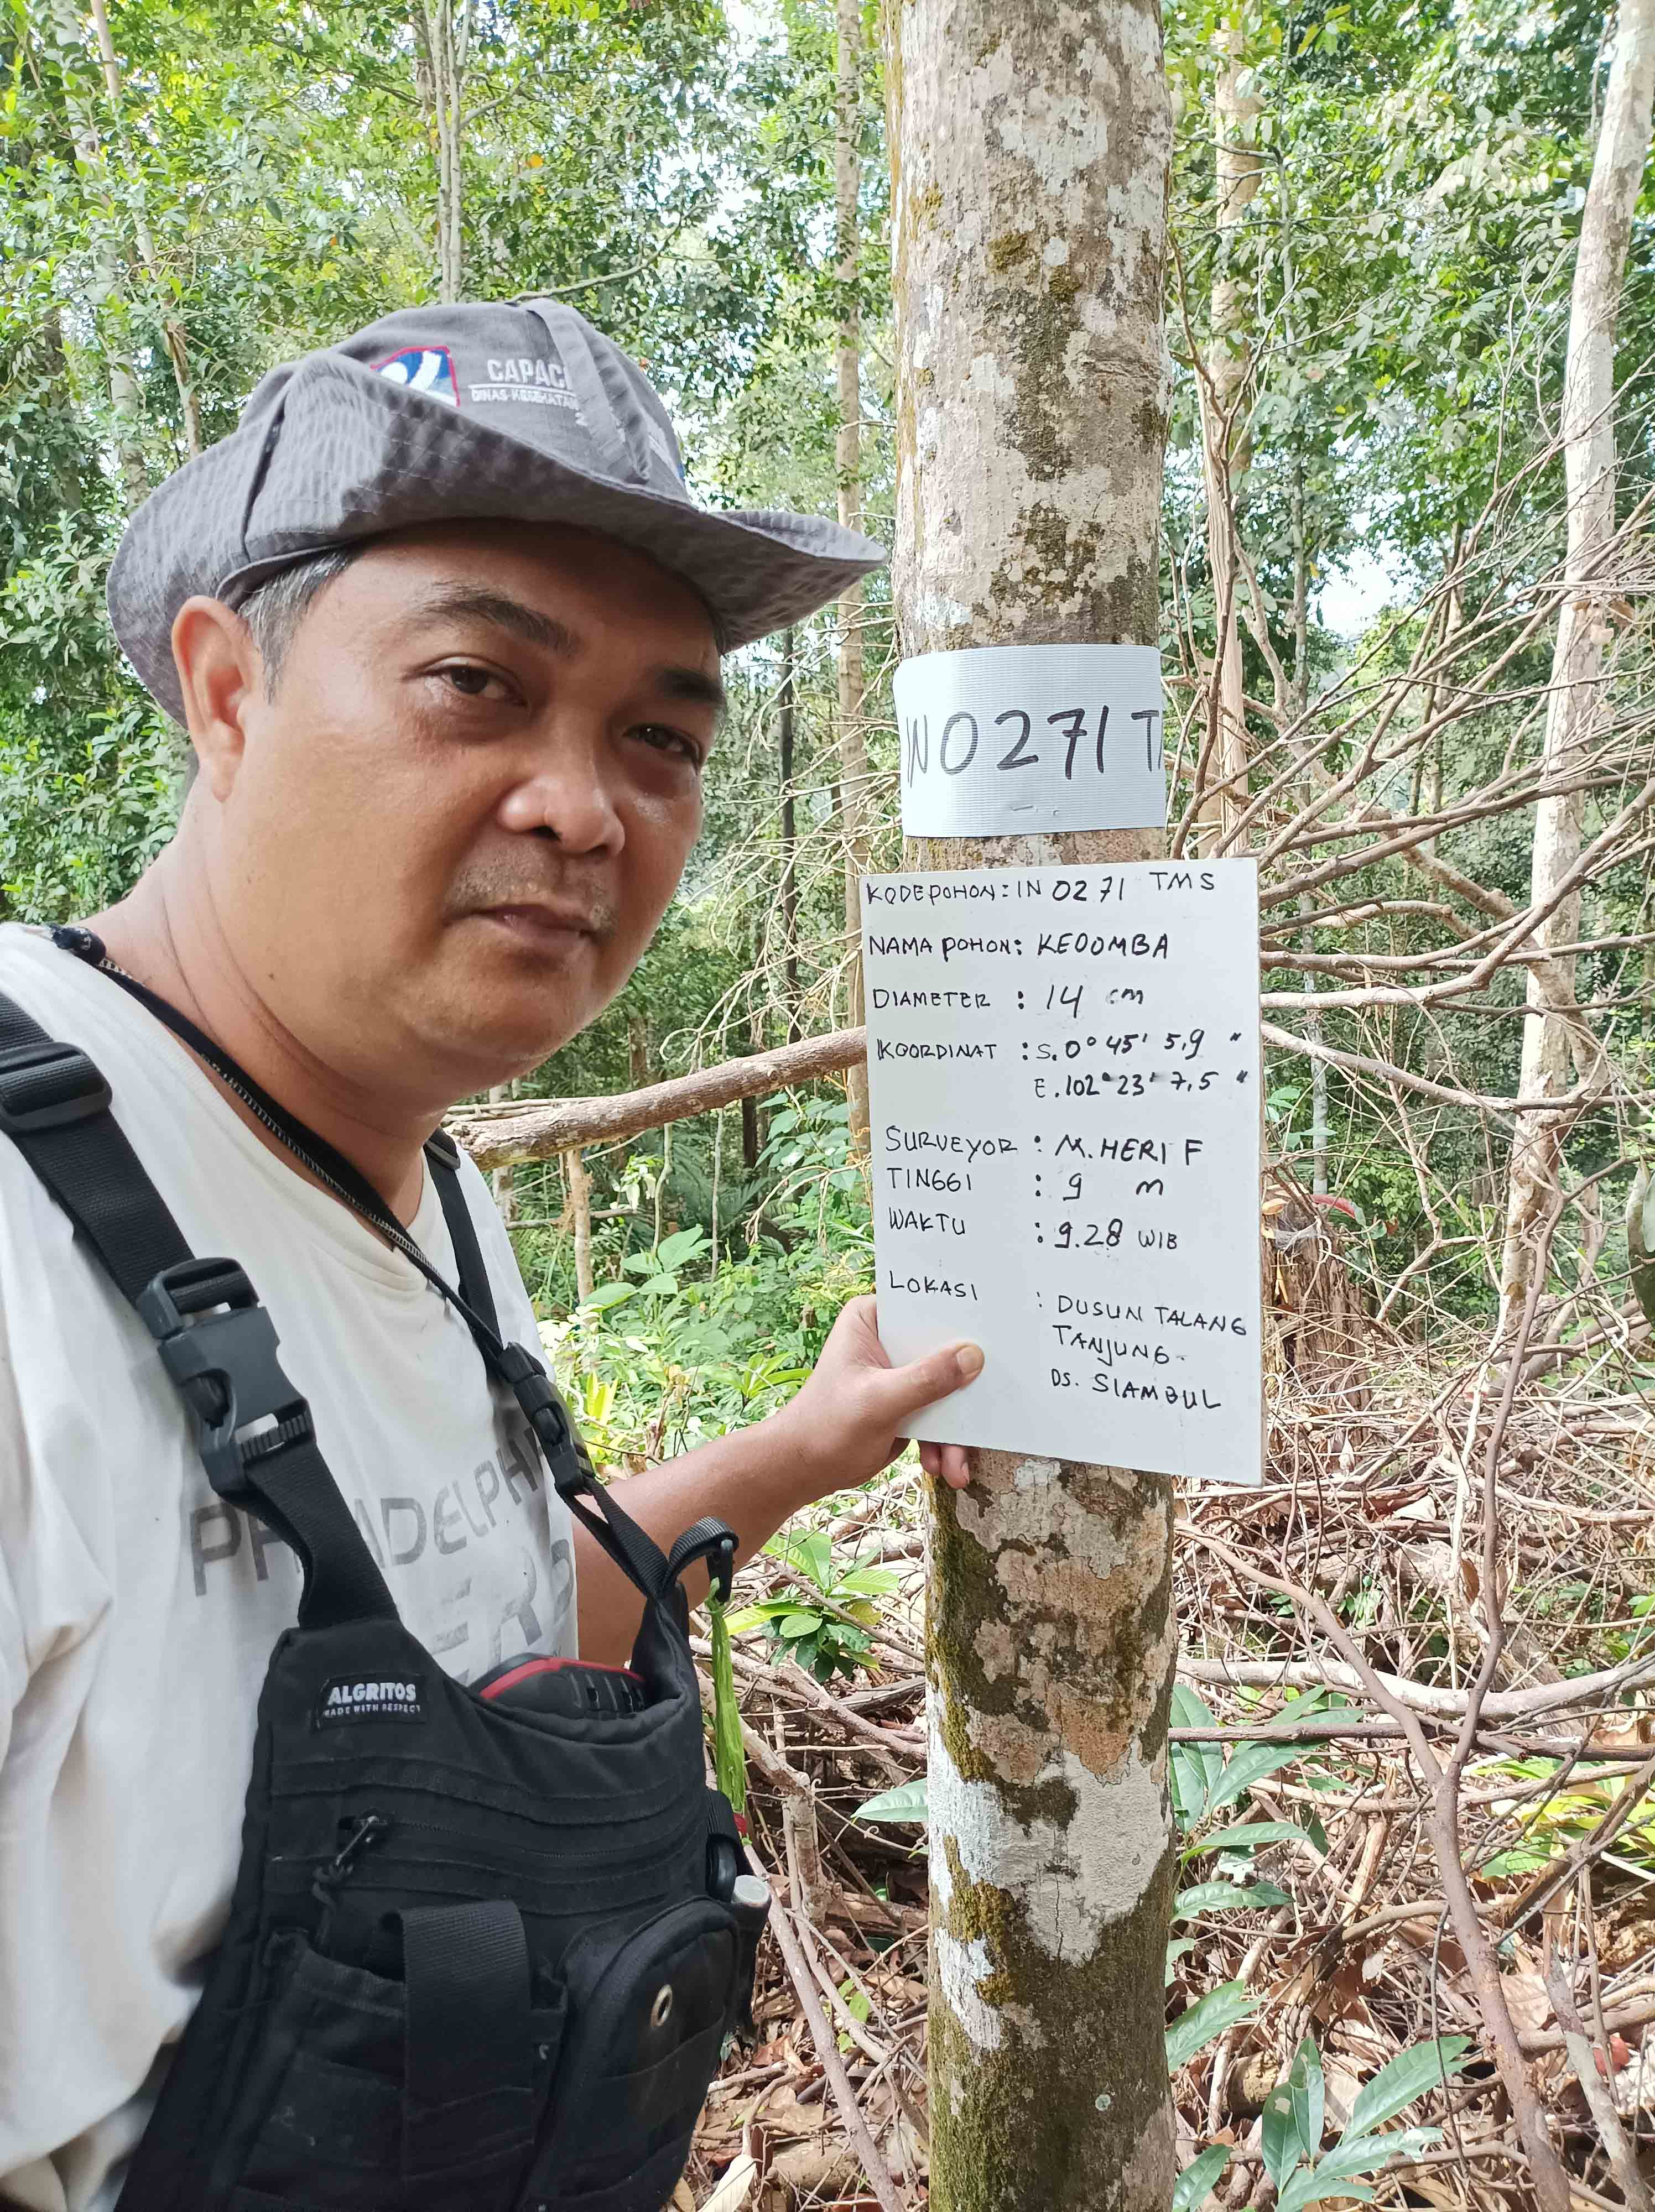 CAPACI
DINAS KESEHATAN
IN 0271 T
KODE POHON : IN 0271 TMS
NAMA POHON : KEDOMBA
DIAMETER : 14 cm
KOORDINAT : S. 0° 45' 5,9 "
E. 102° 23' 7,5 "
SURVEYOR : M. HERI F
TINGGI : 9 m
WAKTU : 9.28 WIB
LOKASI : DUSUN TALANG
TANJUNG.
DS. SIAMBUL
PHILADELPHI
ALGRITOS
MADE WITH RESPECT